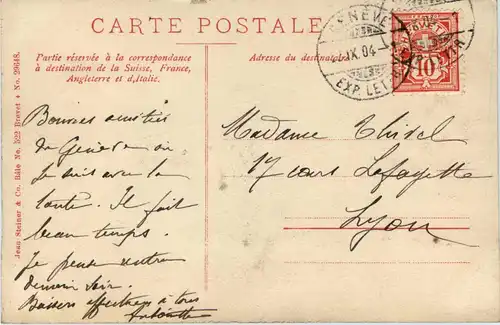 CARTE POSTALE
Partie réservée à la correspondance
à destination de la Suisse, France,
Angleterre et d'Italie.
Adresse du destinataire
GENÈVE
IX.04
EXP. LET
10
Jean Steiner & Co. Bâle No. 322 Brevet + No. 29648.
Bonnes amitiés
de Genève où
je suis avec la
tante. Il fait
beau temps.
Je pense rentrer
demain soir.
Baisers affectueux à tous
Antoinette
Madame
17 cours Lafayette
Lyon